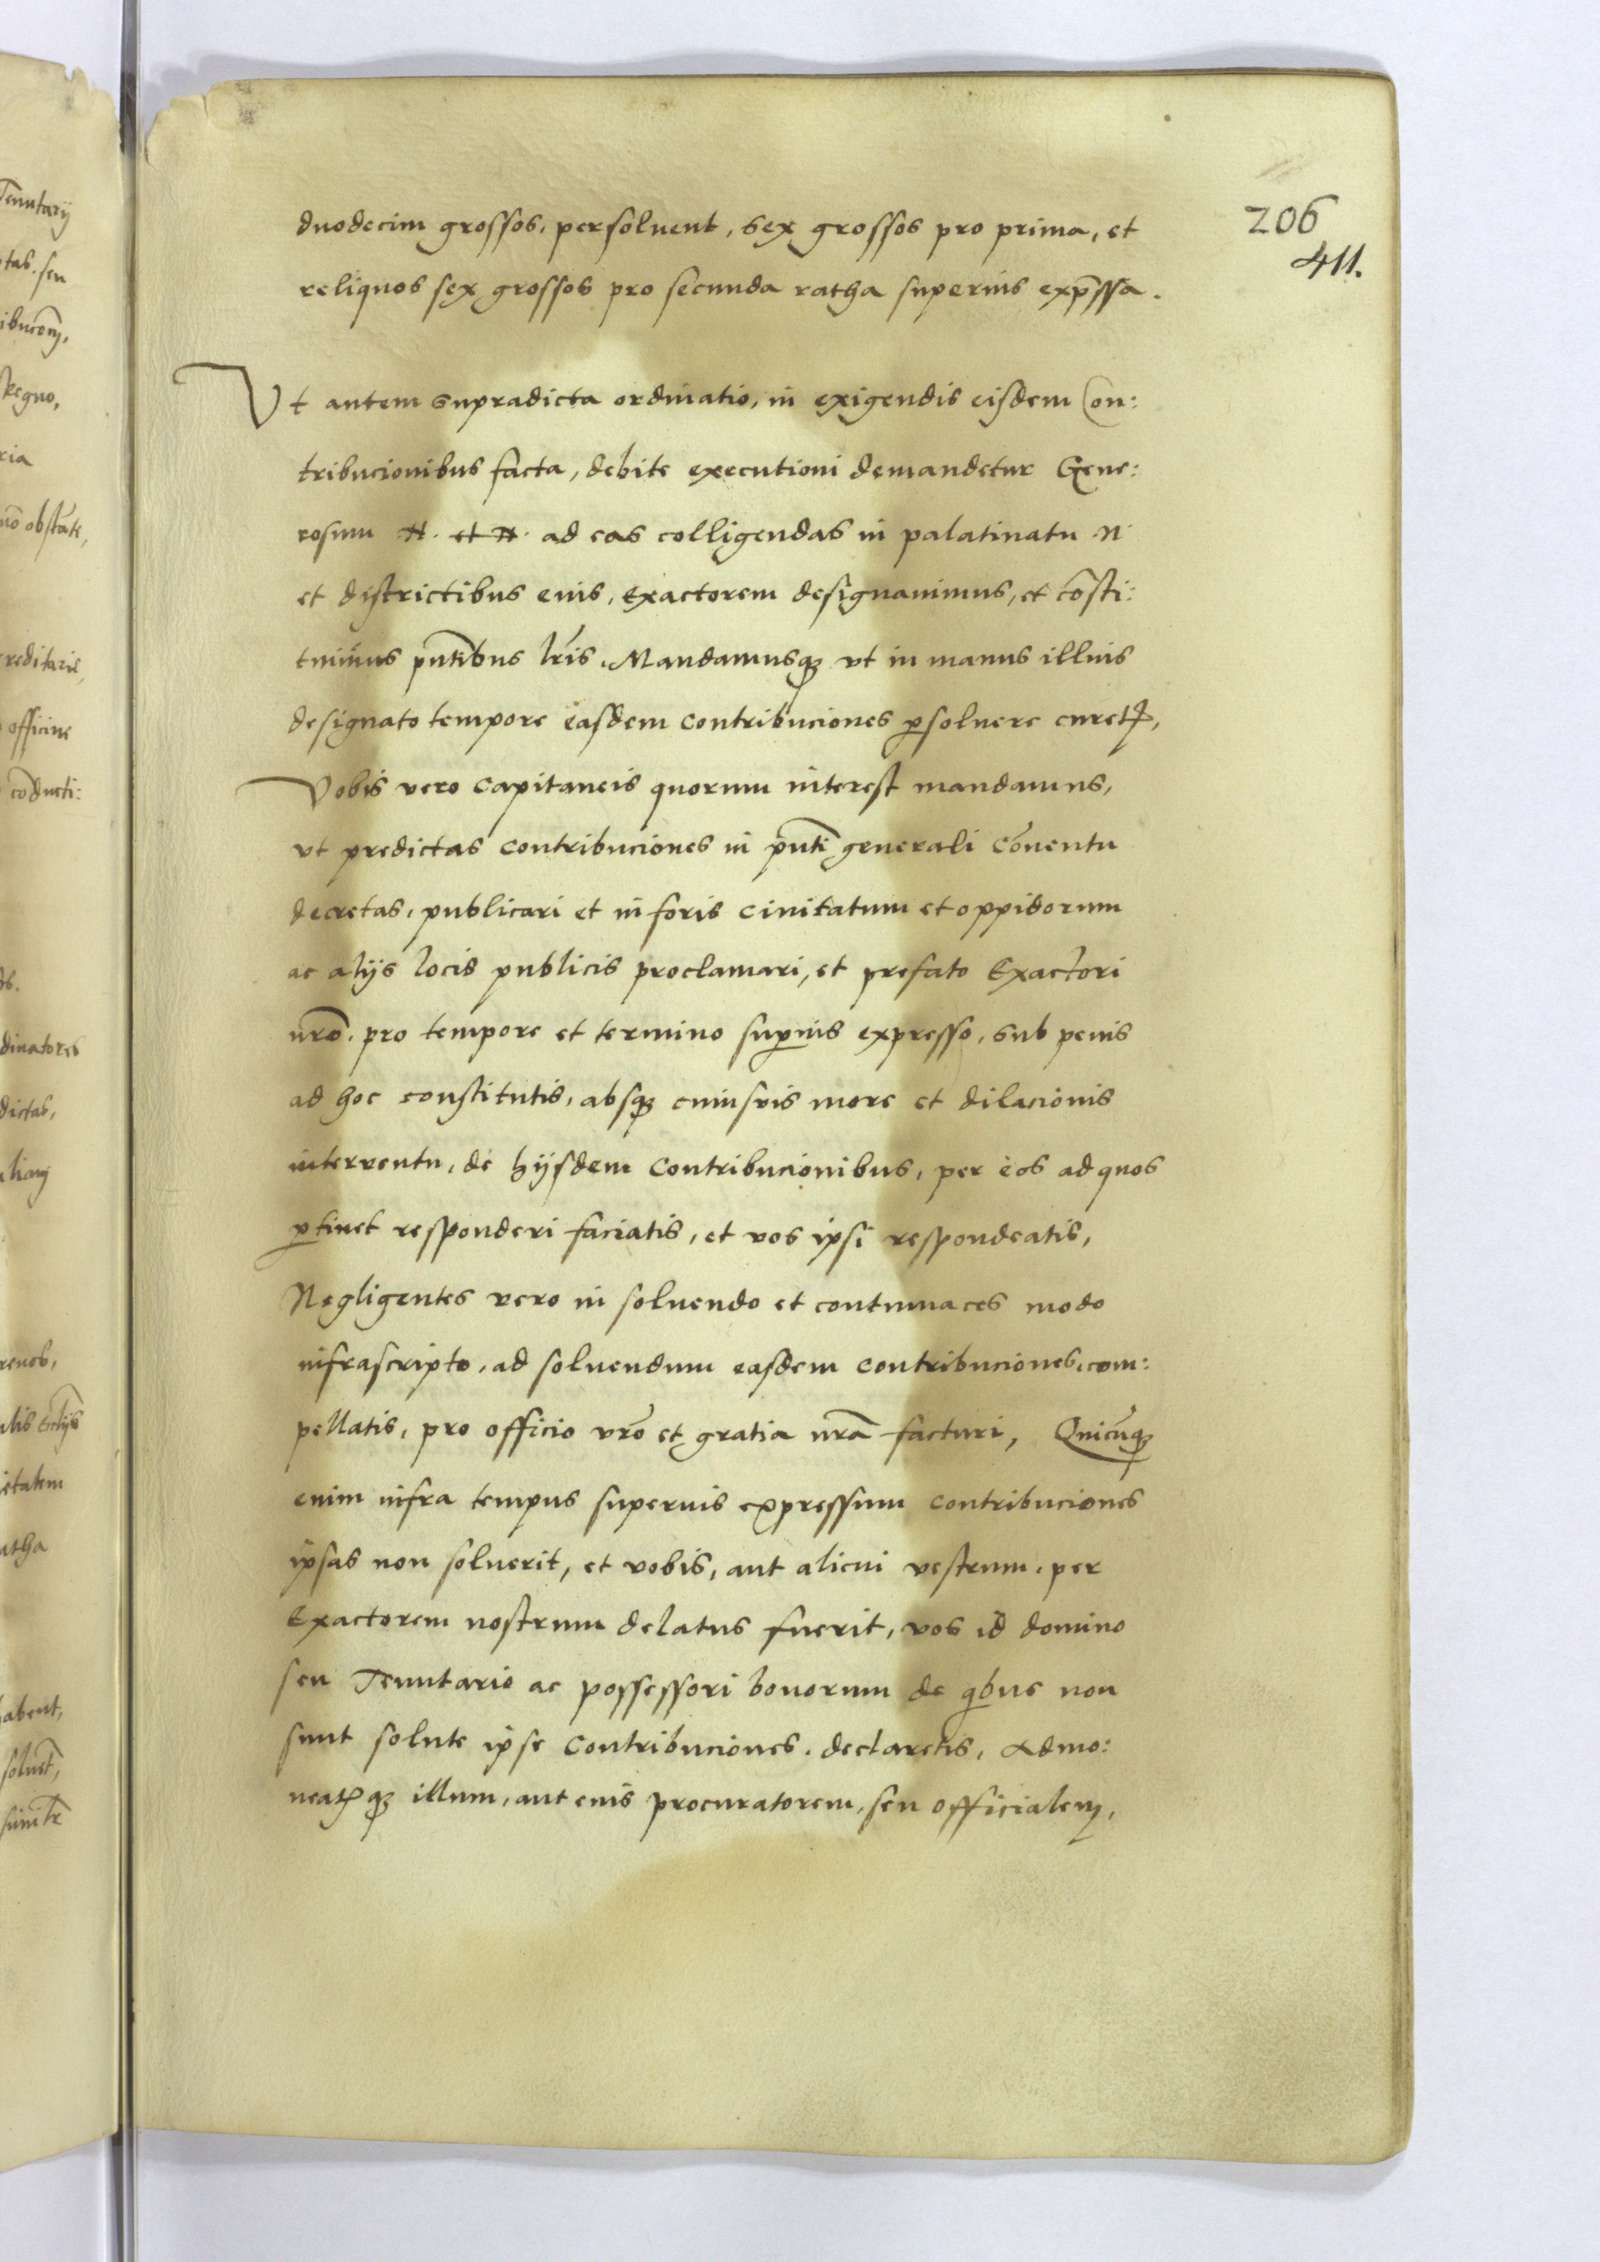 206
411.
duodecim grossos, persoluent, sex grossos pro prima, et
reliquos sex grossos pro secunda ratha superius exp̄ssa.
Vt autem supradicta ordinatio, in exigendis eisdem Con:
tribucionibus facta, debite executioni demandetur Gene:
rosum N. et N. ad eas colligendas in palatinatu N
et districtibus eius, exactorem designauimus, et cōsti:
tuimus pn̄tibus lr̄is. Mandamusqꝫ vt in manus illius
designato tempore easdem contribuciones ꝑsoluere curetꝭ,
Vobis vero Capitaneis quorum interest mandamus,
vt predictas contribuciones in pn̄ti generali Cōuentu
decretas, publicari et in foris ciuitatum et oppidorum
ac alijs locis publicis proclamari, et prefato Exactori
nr̄o. pro tempore et termino suꝑius expresso, sub penis
ad hoc constitutis, absqꝫ cuiusuis more et dilacionis
interuentu, de hijsdem Contribucionibus, per eos ad quos
ꝑtinet responderi faciatis, et vos ipsi respondeatis,
Negligentes vero in soluendo et contumaces modo
infrascripto, ad soluendum easdem contribuciones, com:
pellatis, pro officio vr̄o et gratia nr̄a facturi, Quicūqꝫ
enim infra tempus superius expressum contribuciones
ipsas non soluerit, et vobis, aut alicui vestrum. per
Exactorem nostrum delatus fuerit, vos id domino
seu Tenutario ac possessori bonorum de qibus non
sunt solute ipse Contribuciones. declaretis, Admo:
neatꝭqꝫ illum, aut eius procuratorem, seu officialem,